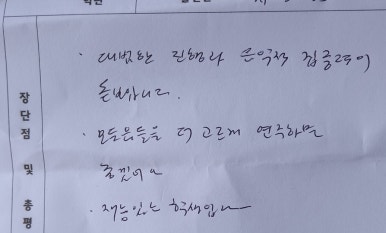 · 대범한 진행과 큰 음악적 집중력이
돋보입니다.
· 모든 음들을 더 고르게 연주하면
좋겠어요
· 재능있는 학생입니다
장단점 및 총평